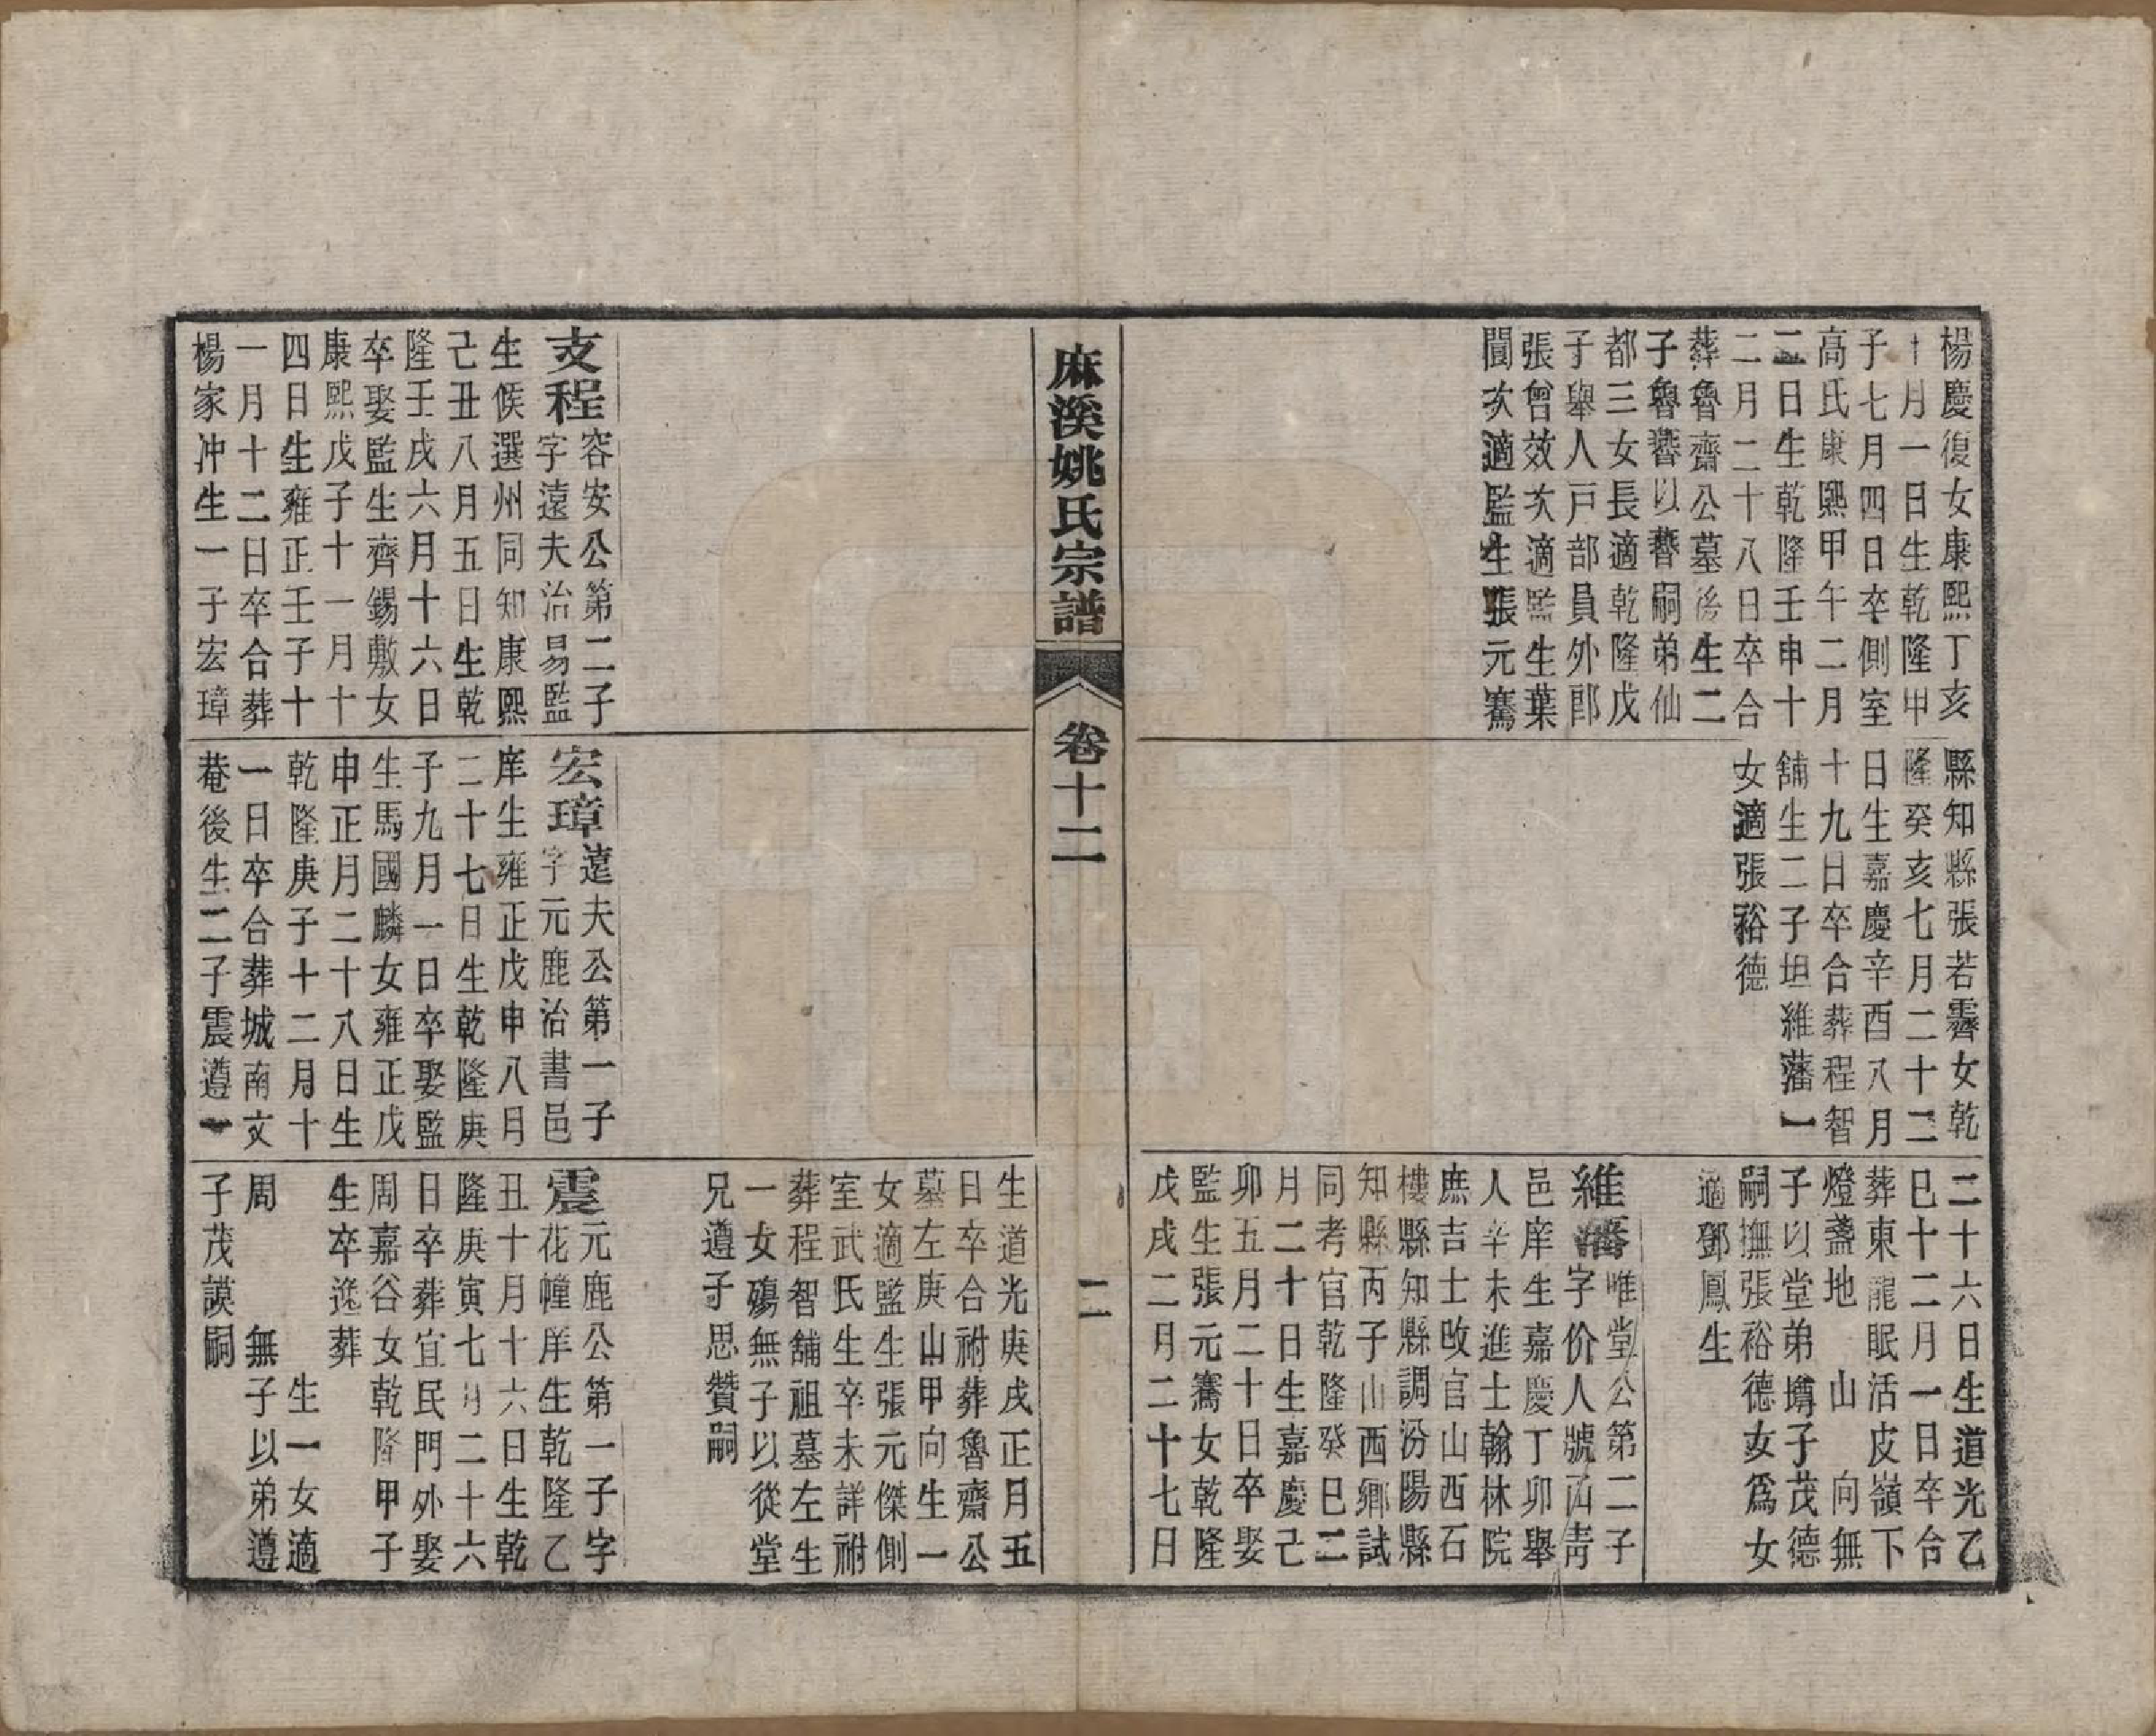 楊慶復女康熙丁亥
十月一日生乾隆甲
子七月四日卒側室
高氏康熙甲午二月
二日生乾隆壬申十
二月二十八日卒合
葬魯齋公墓後生二
子魯朁以朁嗣弟仙
都三女長適乾隆戊
子舉人戶部員外郎
張曾效次適監生葉
閬次適監生張元騫
縣知縣張若霱女乾
隆癸亥七月二十二
日生嘉慶辛酉八月
十九日卒合葬程智
舖生二子坦維藩一
女適張裕德
二十六日生道光乙
巳十二月一日卒合
葬東龍眠活皮嶺下
燈盞地 山 向無
子以堂弟塼子茂德
嗣撫張裕德女爲女
適鄧鳳生
維藩唯堂公第二子
字价人號函靑
邑庠生嘉慶丁卯舉
人辛未進士翰林院
庶吉士改官山西石
樓縣知縣調汾陽縣
知縣丙子山西鄉試
同考官乾隆癸巳二
月二十日生嘉慶己
卯五月二十日卒娶
監生張元騫女乾隆
戊戌二月二十七日
麻溪姚氏宗譜 卷十二 二
生道光庚戌正月五
日卒合祔葬魯齋公
墓左庚山甲向生一
女適監生張元傑側
室武氏生卒未詳祔
葬程智舖祖墓左生
一女殤無子以從堂
兄遵子思贊嗣
支程容安公第二子
字遠夫治易監
生候選州同知康熙
己丑八月五日生乾
隆壬戌六月十六日
卒娶監生齊錫敷女
康熙戊子十一月十
四日生雍正壬子十
一月十二日卒合葬
楊家冲生一子宏璋
宏璋遠夫公第一子
字元鹿治書邑
庠生雍正戊申八月
二十七日生乾隆庚
子九月一日卒娶監
生馬國麟女雍正戊
申正月二十八日生
乾隆庚子十二月十
一日卒合葬城南文
菴後生二子震遵一
震元鹿公第一子字
花幢庠生乾隆乙
丑十月十六日生乾
隆庚寅七月二十六
日卒葬宜民門外娶
周嘉谷女乾隆甲子
生卒逸葬
生一女適
周 無子以弟遵
子茂謨嗣